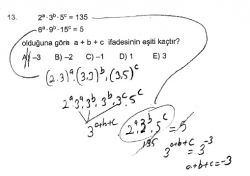 13. 2ᵃ · 3ᵇ · 5ᶜ = 135
6ᵃ · 9ᵇ · 15ᶜ = 5
olduğuna göre a + b + c ifadesinin eşiti kaçtır?
A) –3 B) –2 C) –1 D) 1 E) 3
(2.3)ᵃ . (3.3)ᵇ . (3.5)ᶜ
2ᵃ.3ᵃ.3ᵇ.3ᵇ.3ᶜ.5ᶜ
3ᵃ⁺ᵇ⁺ᶜ 2ᵃ.3ᵇ.5ᶜ = 5
135
3ᵃ⁺ᵇ⁺ᶜ = 3⁻³
a+b+c = -3